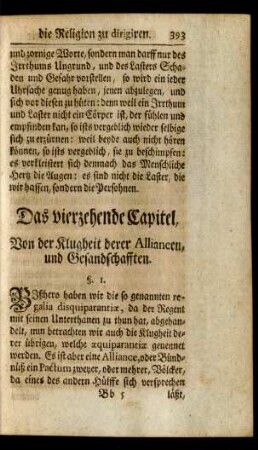 die Religion zu dirigiren. 393
und zornige Worte, sondern man darff nur des
Irrthums Ungrund, und des Lasters Scha-
den und Gefahr vorstellen, so wird ein ieder
Uhrsache genug haben, jenen abzulegen, und
sich vor diesen zu hüten: denn weil ein Irrthum
und Laster nicht ein Cörper ist, der fühlen und
empfinden kan, so ists vergeblich wieder selbige
sich zu erzürnen: weil beyde auch nicht hören
können, so ists vergeblich, sie zu beschimpfen:
es verkleistert sich demnach das Menschliche
Hertz die Augen: es sind nicht die Laster, die
wir hassen, sondern die Persohnen.
Das vierzehende Capitel,
Von der Klugheit derer Alliancen,
und Gesandschafften.
§. 1.
Bißhero haben wir die so genannten re-
galia disquiparantiæ, da der Regent
mit seinen Unterthanen zu thun hat, abgehan-
delt, nun betrachten wir auch die Klugheit de-
rer übrigen, welche æquiparantiæ genennet
werden. Es ist aber eine Alliance, oder Bünd-
nüß ein Pactum zweyer, oder mehrer, Völcker,
da eines des andern Hülffe sich versprechen
Bb 5 läßt,